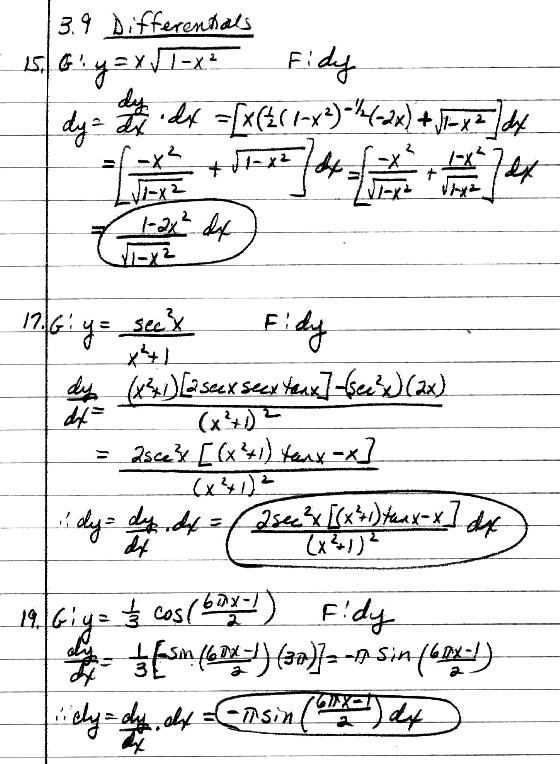 3.9 Differentials
15. G: y = x√(1-x²) F: dy
dy = dy/dx · dx = [x(½(1-x²)^(-1/2)(-2x) + √(1-x²)]dx
= [-x²/√(1-x²) + √(1-x²)]dx = [-x²/√(1-x²) + (1-x²)/√(1-x²)]dx
= (1-2x²)/√(1-x²) dx
17. G: y = sec²x/(x²+1) F: dy
dy/dx = ((x²+1)[2secx secx tanx] - (sec²x)(2x))/(x²+1)²
= 2sec²x[(x²+1)tanx - x]/(x²+1)²
∴ dy = dy/dx · dx = 2sec²x[(x²+1)tanx - x]/(x²+1)² dx
19. G: y = ⅓ cos((6πx-1)/2) F: dy
dy/dx = ⅓[-sin((6πx-1)/2)(3π)] = -π sin((6πx-1)/2)
∴ dy = dy/dx · dx = -π sin((6πx-1)/2) dx